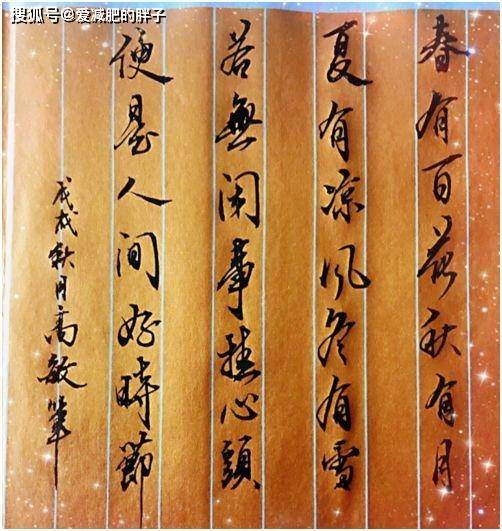 搜狐号@爱减肥的胖子
春有百花秋有月
夏有凉风冬有雪
若無闲事挂心頭
便是人间好時節
戊戌秋月高敏筆